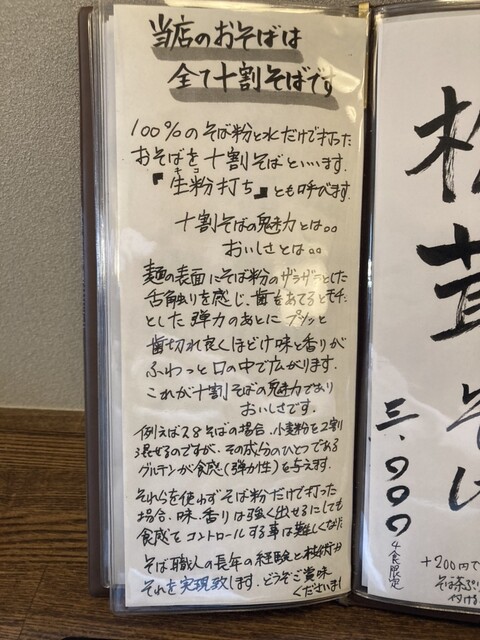 当店のおそばは
全て十割そばです
100%のそば粉と水だけで打った
おそばを十割そばといいます。
キコ
『生粉打ち』とも呼びます。
十割そばの魅力とは。。
おいしさとは。。
麺の表面にそば粉のザラザラとした
舌触りを感じ、歯をあてるとモチッ
とした弾力のあとにプツッと
歯切れ良くほどけ味と香りが
ふわっと口の中で広がります。
これが十割そばの魅力であり
おいしさです。
例えば28そばの場合、小麦粉を2割
混ぜるのですが、その成分のひとつである
グルテンが食感(弾力性)を与えます。
それらを使わずそば粉だけで打った
場合、味、香りは強く出せるにしても
食感をコントロールする事は難しくなり
そば職人の長年の経験と技術が
それを実現致します。どうぞご賞味
くださいまし
松茸そば
三、000
4食限定
+200円で
そば茶ぷり
付ける